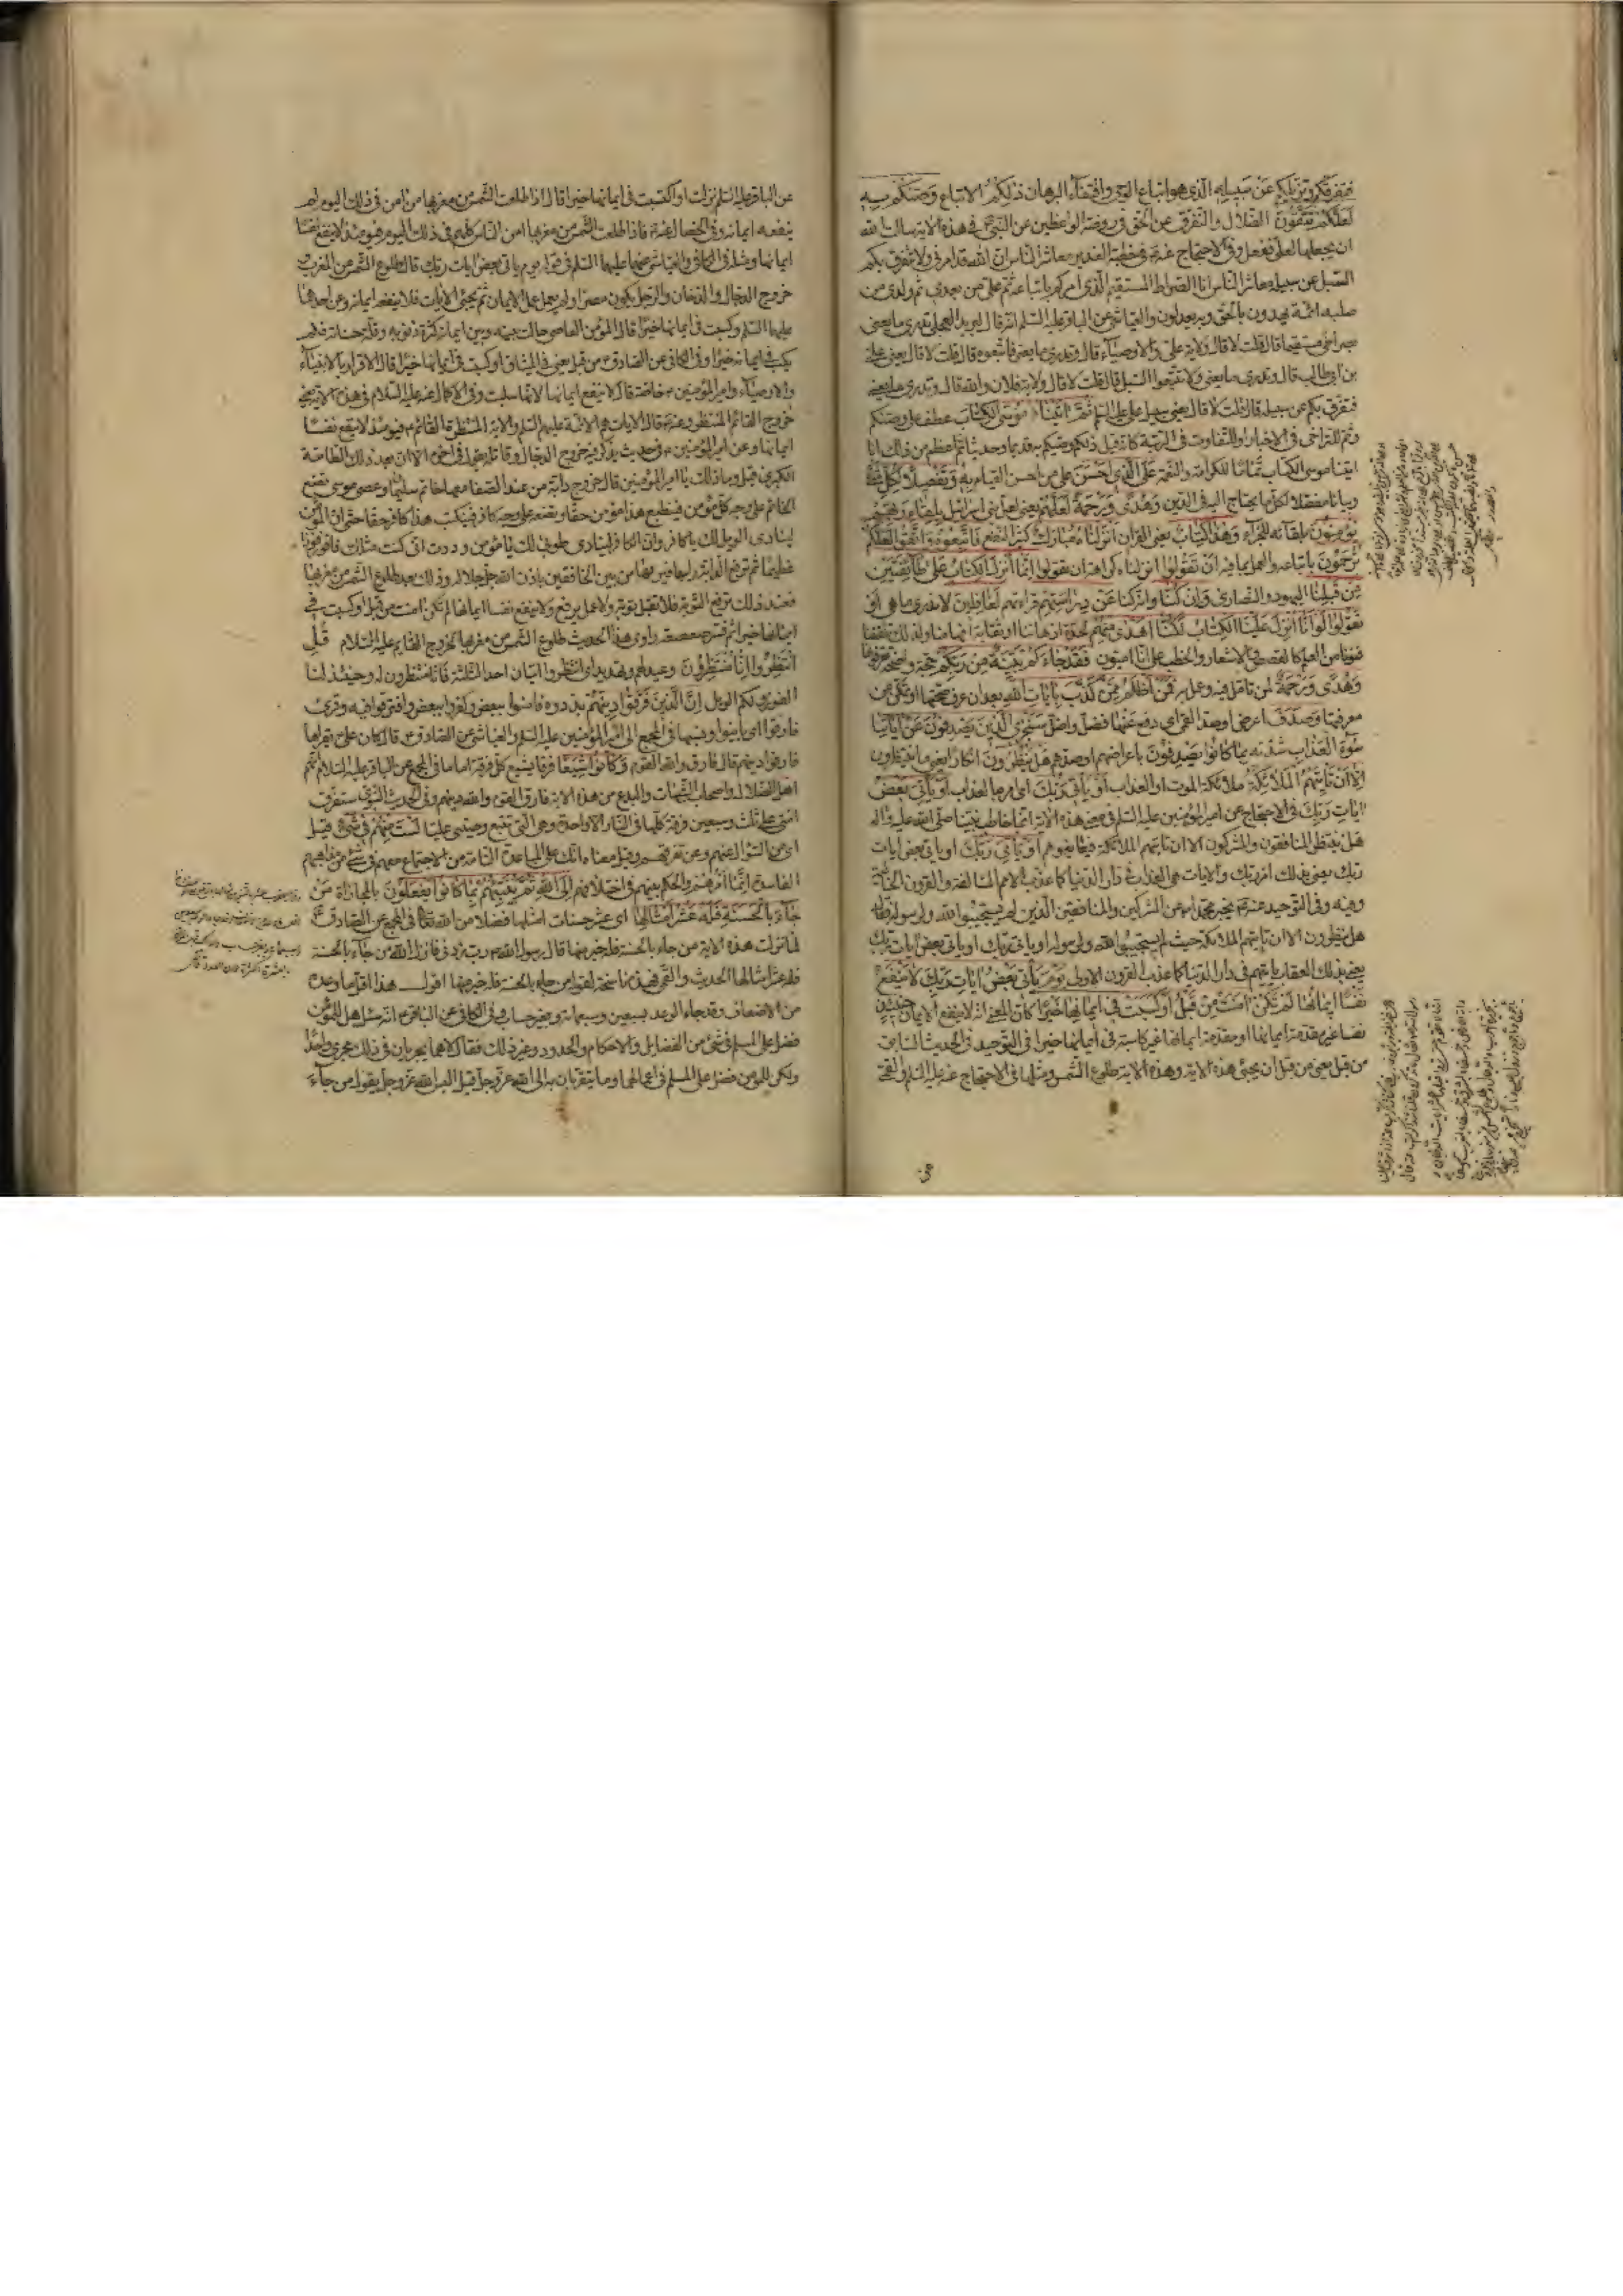 فيفرقكم ويزيلكم عن سبيله الذي هو اتباع الوحي واقتفاء البرهان ذلكم الاتباع وصيكم به
لعلكم تتقون الضلال والتفرق عن الحق في روضة الواعظين عن النبي في هذه الاية سالت الله
ان يجعلها لعلي ففعل وفي الاحتجاج عنه في خطبة الغدير معاشر الناس ان الله قد امرني ولا تتفرق بكم
السبل عن سبيله معاشر الناس انا الصراط المستقيم الذي امركم باتباعه ثم علي من بعدي ثم ولدي من
صلبه ائمة يهدون بالحق وبه يعدلون والعياشي عن الباقر عليه السلم انه قال لبريد العجلي تدري ما يعني
صراطي مستقيما قال قلت لا قال ولاية علي والاوصياء قال وتدري ما يعني فاتبعوه قال قلت لا قال يعني علي
بن ابي طالب قال وتدري ما يعني ولا تتبعوا السبل قال قلت لا قال ولاية فلان وفلان والله قال وتدري ما يعني
فتفرق بكم عن سبيله قال قلت لا قال يعني سبيل علي عليه السلم ثم اتينا موسى الكتاب عطف على وصيكم
وثم للتراخي في الاخبار او للتفاوت في الرتبة كانه قيل ذلكم وصيكم به قديما وحديثا ثم اعظم من ذلك انا
اتينا موسى الكتاب تماما للكرامة والنعمة على الذي احسن على من احسن القيام به وتفصيلا لكل شئ
وبيانا مفصلا لكل ما يحتاج اليه في الدين وهدى ورحمة لعلهم يعني لعل بني اسرائيل بلقاء ربهم
يؤمنون بلقائه للجزاء وهذا كتاب يعني القران انزلناه مبارك كثير النفع فاتبعوه واتقوا لعلكم
ترحمون باتباعه والعمل بما فيه ان تقولوا انزلناه كراهة ان تقولوا انما انزل الكتاب على طائفتين
من قبلنا اليهود والنصارى وان كنا وانه كنا عن دراستهم قراءتهم لغافلين لا ندري ما هي او
تقولوا لو انا انزل علينا الكتاب لكنا اهدى منهم لحدة اذهاننا وثقابة افهامنا ولذلك تلقفنا
فنونا من العلم كالقصص والاشعار والخطب على انا اميون فقد جاءكم بينة من ربكم حجة واضحة تعرفونها
وهدى ورحمة لمن تامل فيه وعمل به فمن اظلم ممن كذب بايات الله بعد ان عرف صحتها او تمكن من
معرفتها وصدف اعرض او صد عنها فضل واضل سنجزي الذين يصدفون عن اياتنا
سوء العذاب شدته بما كانوا يصدفون باعراضهم او صدهم هل ينظرون انكار يعني ما ينتظرون
الا ان تاتيهم الملائكة ملائكة الموت او العذاب او ياتي ربك اي امره بالعذاب او ياتي بعض
ايات ربك في الاحتجاج عن امير المؤمنين عليه السلم في معنى هذه الاية انما خاطب نبينا صلى الله عليه واله
هل ينتظر المنافقون والمشركون الا ان تاتيهم الملائكة فيعاينوهم او ياتي ربك او ياتي بعض ايات
ربك يعني بذلك امر ربك والايات هي العذاب في دار الدنيا كما عذب الامم السالفة والقرون الخالية
وفيه وفي التوحيد عنه يخبر محمد عن المشركين والمنافقين الذين لم يستجيبوا لله ولرسوله فقال
هل ينظرون الا ان تاتيهم الملائكة حيث لم يستجيبوا لله ولرسوله او ياتي ربك او ياتي بعض ايات ربك
يعني بذلك العذاب ياتيهم في دار الدنيا كما عذب القرون الاولى يوم ياتي بعض ايات ربك لا ينفع
نفسا ايمانها لم تكن امنت من قبل او كسبت في ايمانها خيرا كان المعنى انه لا ينفع الايمان حينئذ
نفسا غير مقدمة ايمانها او مقدمة ايمانها غير كاسبة في ايمانها خيرا في التوحيد في الحديث السابق
من قبل يعني من قبل ان تجيئ هذه الاية وهذه الاية طلوع الشمس ومثلها في الاحتجاج عنه عليه السلم والقمي
عن الباقر عليه السلم نزلت او اكتسبت في ايمانها خيرا قال اذا طلعت الشمس من مغربها من امن في ذلك اليوم لم
ينفعه ايمانه وفي الخصال عنه فاذا طلعت الشمس من مغربها امن الناس كلهم في ذلك اليوم فيومئذ لا ينفع نفسا
ايمانها ومثله في الكافي والعياشي عنهما عليهما السلم في قوله يوم ياتي بعض ايات ربك قال طلوع الشمس من المغرب و
خروج الدجال والدخان والرجل يكون مصرا ولم يعمل عمل الايمان ثم تجيئ الايات فلا ينفعه ايمانه وعن احدهما
عليهما السلم او كسبت في ايمانها خيرا قال المؤمن العاصي حالت بينه وبين ايمانه كثرة ذنوبه وقلة حسناته فلم
يكسب في ايمانه خيرا وفي الكافي عن الصادق من قبل يعني في الميثاق او كسبت في ايمانها خيرا قال الاقرار بالانبياء
والاوصياء وامير المؤمنين خاصة قال لا ينفع ايمانها لانها سلبت وفي الاكمال عنه عليه السلام في هذه الاية يعني
خروج القائم المنتظر وعنه قال الايات هم الائمة عليهم السلم والاية المنتظرة القائم فيومئذ لا ينفع نفسا
ايمانها وعن امير المؤمنين في حديث يذكر فيه خروج الدجال وقاتله يقول في اخره الا ان بعد ذلك الطامة
الكبرى قيل وما ذلك يا امير المؤمنين قال خروج دابة من عند الصفا معها خاتم سليمان وعصى موسى تضع
الخاتم على وجه كل مؤمن فينطبع هذا مؤمن حقا وتضعه على وجه كافر فينكتب هذا كافر حقا حتى ان المؤمن
لينادي الويل لك يا كافر وان الكافر لينادي طوبى لك يا مؤمن وددت اني كنت مثلك فافوز فوزا
عظيما ثم ترفع الدابة راسها فيريها من بين الخافقين باذن الله جل جلاله وذلك بعد طلوع الشمس من مغربها
فعند ذلك ترفع التوبة فلا تقبل توبة ولا عمل يرفع ولا ينفع نفسا ايمانها لم تكن امنت من قبل او كسبت في
ايمانها خيرا ثم فسر صعصعة راوي هذا الحديث طلوع الشمس من مغربها بخروج القايم عليه السلام قل
انتظروا انا منتظرون وعيد لهم وتهديد اي انتظروا اتيان احد الثلثة فانا منتظرون له وحينئذ لنا
الفوز ولكم الويل ان الذين فرقوا دينهم بددوه فامنوا ببعض وكفروا ببعض وافترقوا فيه وقرئ
فارقوا اي باينوا ونسبها في المجمع الى امير المؤمنين عليه السلم والعياشي عن الصادق قال كان علي يقراها
فارقوا دينهم قال فارق والله القوم وكانوا شيعا فرقا يشيع كل فرقة اماما في المجمع عن الباقر عليه السلام انهم
اهل الضلال واصحاب الشبهات والبدع من هذه الامة فارق القوم والله دينهم وفي الحديث النبوي ستفرق
امتي على ثلث وسبعين فرقة كلها في النار الا واحدة وهي التي تتبع وصيي عليا لست منهم في شئ قيل
اي من السؤال عنهم وعن تفرقهم وقيل معناه انك على المباعدة التامة من الاجتماع معهم في شئ من مذاهبهم
الفاسدة انما امرهم والحكم بينهم في اختلافهم الى الله ثم ينبئهم بما كانوا يفعلون بالمجازاة من
جاء بالحسنة فله عشر امثالها اي عشر حسنات امثالها فضلا من الله تعالى في المجمع عن الصادق
لما نزلت هذه الاية من جاء بالحسنة فله خير منها قال رسول الله رب زدني فانزل الله من جاء بالحسنة
فله عشر امثالها الحديث والقمي فهذه ناسخة لقوله من جاء بالحسنة فله خير منها اقول هذا اقل ما وعد
من الاضعاف وقد جاء الوعد بسبعين وسبعمائة وبغير حساب وفي الكافي عن الباقر انه سئل هل للمؤمن
فضل على المسلم في شئ من الفضايل والاحكام والحدود وغير ذلك فقال لا هما يجريان في ذلك مجرى واحدا
ولكن للمؤمن فضل على المسلم في اعمالهما وما يتقربان به الى الله عز وجل قيل اليس الله عز وجل يقول من جاء